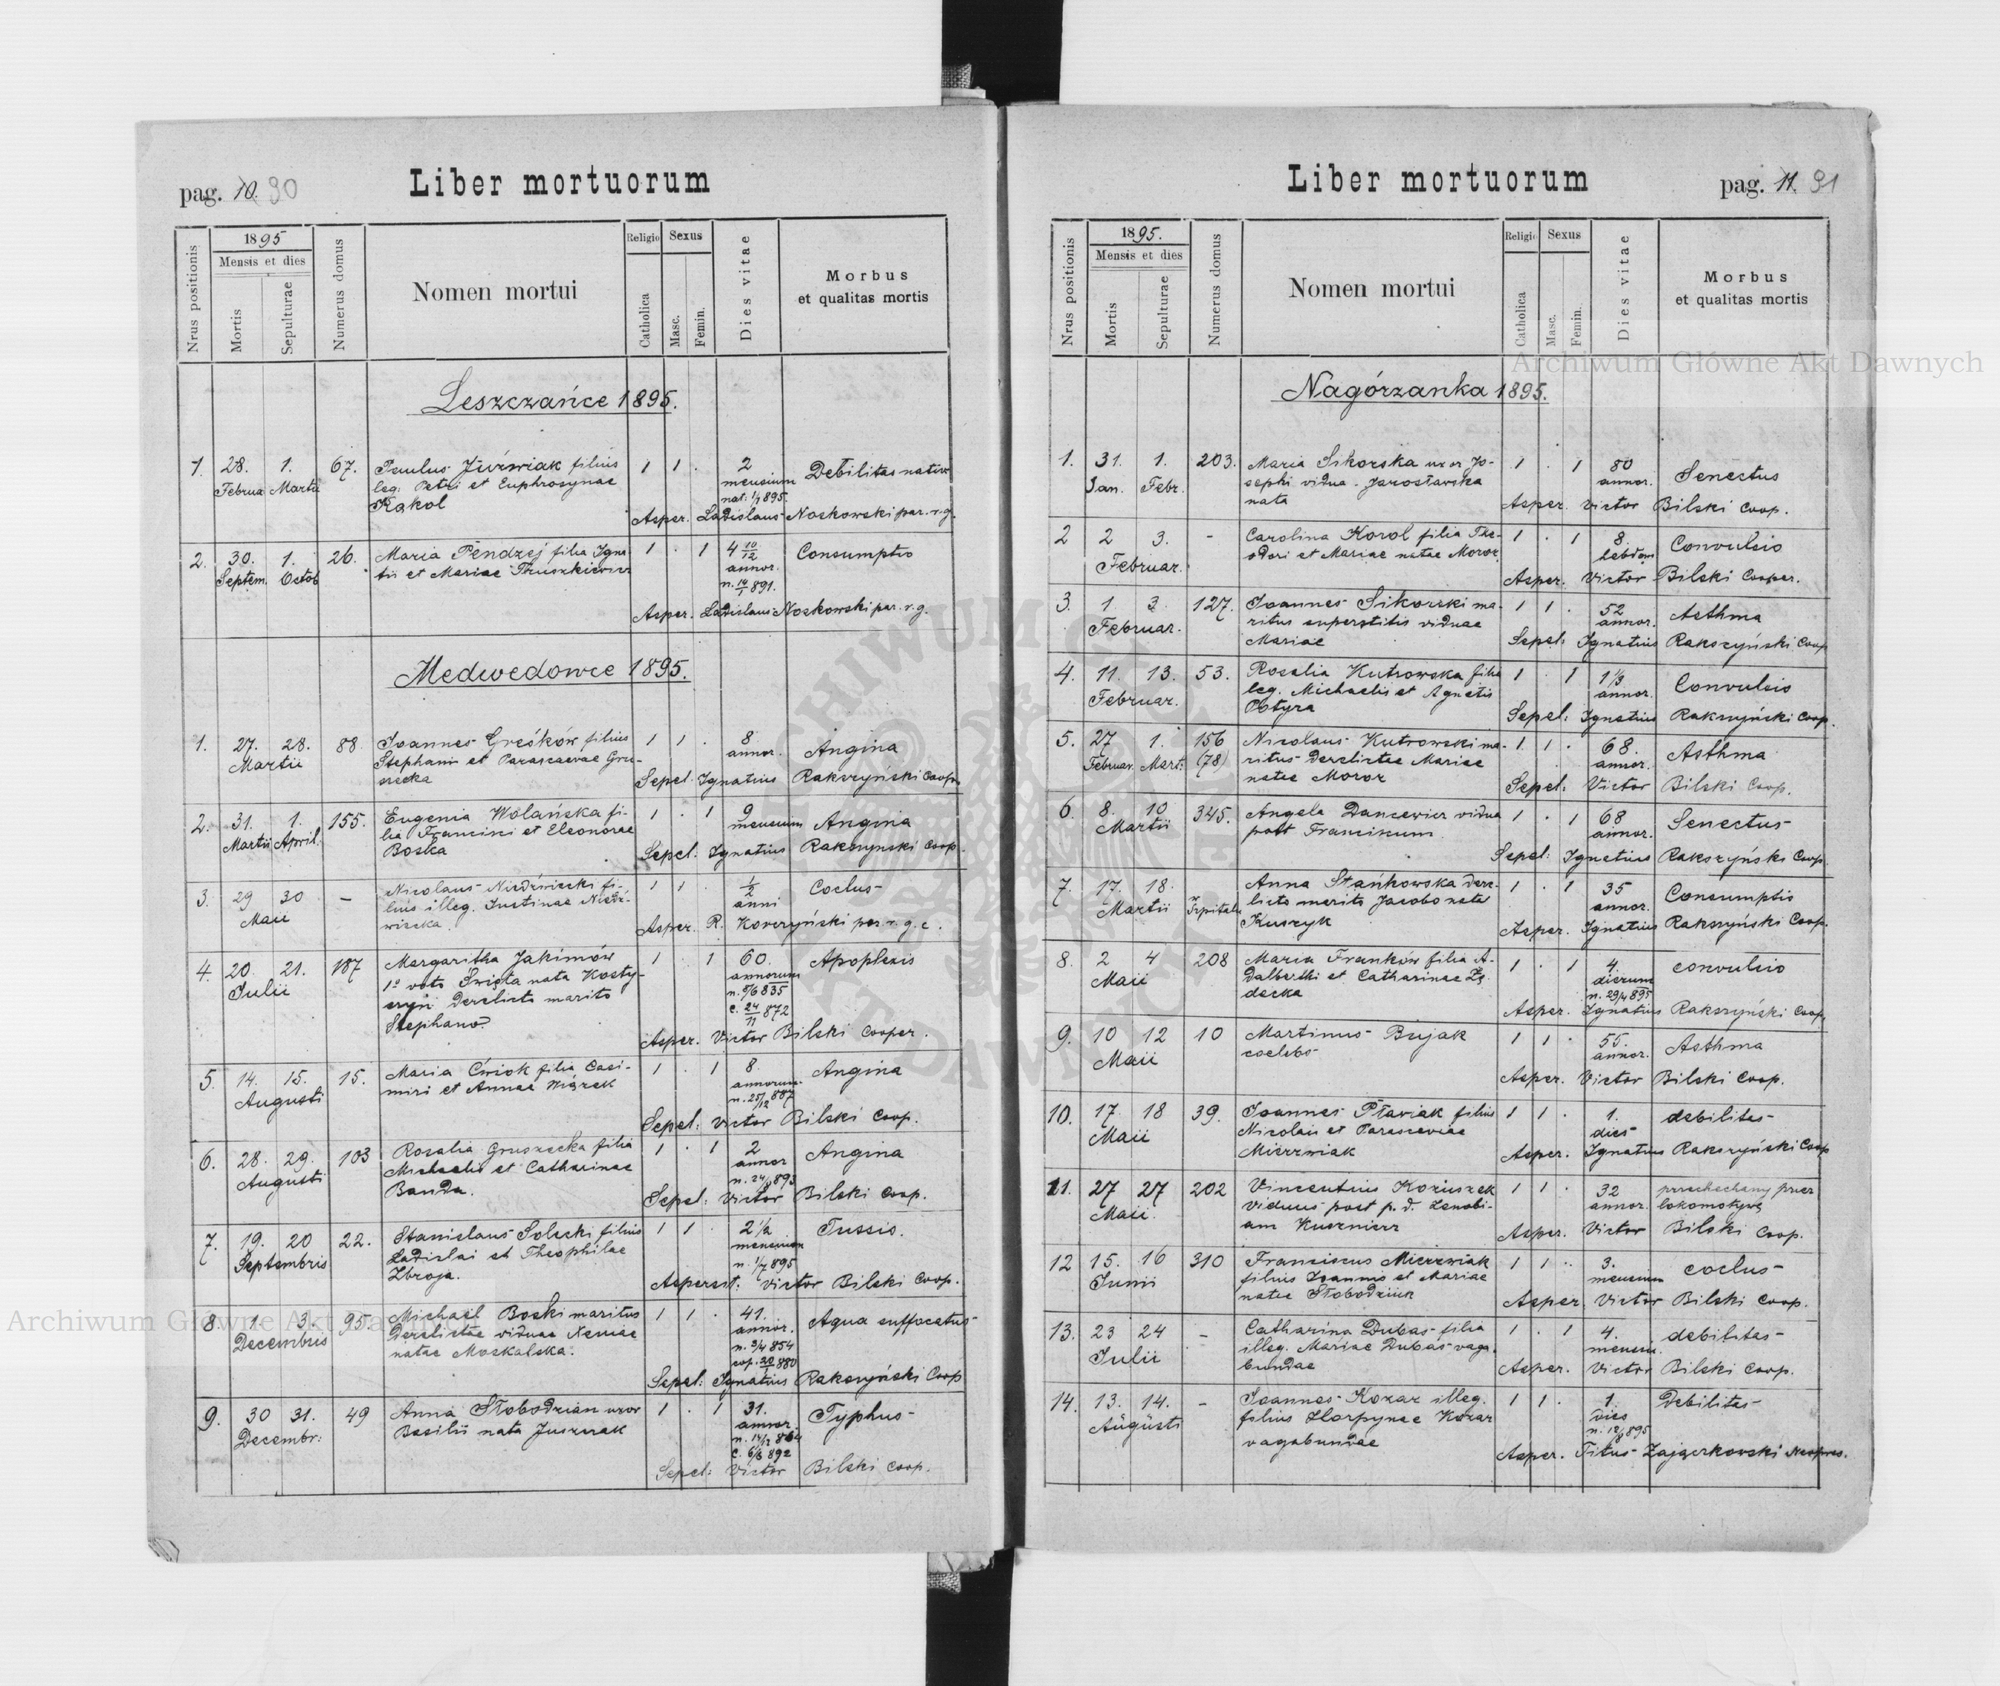 pag. 10. 90
Liber mortuorum
Nrus positionis
1895
Mensis et dies
Mortis
Sepulturae
Numerus domus
Nomen mortui
Religio
Catholica
Sexus
Masc.
Femin.
Dies vitae
Morbus
et qualitas mortis
Leszczańce 1895.
1. 28. 1. 67. Paulus filius 1 1 . 2 Debilitas nativ
Februa Martii leg. Petri et Euphrosynae mensium
Kąkol nat: 1/1 895.
Asper. Ladislaus Noskowski par. r. g.
2. 30. 1. 26. Maria Pendzej filia Igna- 1 . 1 4 10/12 Consumptio
Septem. Octob tii et Mariae Truszkiewicz annor.
n. 14/1 891.
Asper. Ladislaus Noskowski par. r. g.
Medwedowce 1895.
1. 27. 28. 88. Joannes filius 1 1 . 8 Angina
Martii Stephani et Parascaevae Gru- annor.
szecka Sepel. Ignatius Rakszyński Coop.
2. 31. 1. 155. Eugenia Wolańska fi- 1 . 1 9 Angina
Martii April. lia Francisci et Eleonorae mensium
Boska Sepel: Ignatius Rakszynski Coop.
3. 29 30 — Nicolaus Niedźwiecki fi- 1 1 . 1/2 Coclus-
Maii lius illeg. Justinae Niedź- anni
wiecka. Asper. R. Korczyński par. r. g. c.
4. 20. 21. 187 Margaritha Jakimów 1 . 1 60. Apoplexis
Julii 1º voto Święta nata Kosty- annorum
szyn derelicto marito n. 8/6 835
Stephano. c. 24/11 872
Asper. Victor Bilski Cooper.
5. 14. 15. 15. Maria Ćwiok filia Casi- 1 . 1 8. Angina
Augusti miri et Annae Wiązek annorum.
n. 25/12 887
Sepel: Victor Bilski Coop.
6. 28. 29. 103 Rosalia Gruszecka filia 1 . 1 2 Angina
Augusti Michaelis et Catharinae annor
Banda. n. 893
Sepel: Victor Bilski Coop.
7. 19. 20 22. Stanislaus Solecki filius 1 1 . 2 1/2 Tussis.
Septembris Ladislai et Theophilae mensium
Zbroja. n. 1/7 895
Aspersit. Victor Bilski Coop.
8 1. 3. 95. Michael Boski maritus 1 1 . 41. Aqua suffocatus-
Decembris derelictae viduae Xeniae annor.
natae Moskalska. n. 9/4 854
cop. 880
Sepel: Ignatius Rakszyński Coop
9. 30 31. 49 Anna Słobodzian uxor 1 . 1 31. Typhus-
Decembr: Basilii nata Juszczak annor.
n. 14/12 864
c. 6/3 892
Sepel: Victor Bilski Coop.
Liber mortuorum
pag. 11. 91
Nrus positionis
1895.
Mensis et dies
Mortis
Sepulturae
Numerus domus
Nomen mortui
Religio
Catholica
Sexus
Masc.
Femin.
Dies vitae
Morbus
et qualitas mortis
Nagórzanka 1895.
1. 31. 1. 203. Maria Sikorska uxor Jo- 1 . 1 80 Senectus
Jan. Febr. sephi vidua. Jarosławska annor.
nata Asper. Victor Bilski Coop.
2 2 3. - Carolina Korol filia The- 1 . 1 8. Convulsio
Februar. odori et Mariae natae Moroz hebdom
Asper. Victor Bilski Cooper.
3. 1 3. 127. Joannes Sikorski ma- 1 1 . 52 Asthma
Februar. ritus superstitis viduae annor.
Mariae Sepel. Ignatius Rakszyński Coop
4. 11. 13. 53. Rosalia Kutrowska filia 1 . 1 1 1/3 Convulsio
Februar. leg. Michaelis et Agnetis annor.
Potyra Sepel: Ignatius Rakszyński Coop.
5. 27 1. 156 Nicolaus Kutrowski ma- 1. 1 . 68. Asthma
Februar. Mart. (78) ritus derelictae Mariae annor.
natae Moroz Sepel: Victor Bilski Coop.
6. 8. 10 345. Angela Dancewicz vidua 1 . 1 68 Senectus-
Martii post Franciscum annor.
Sepel: Ignatius Rakszyński Coop.
7. 17. 18. w Szpitalu Anna Stańkowska dere- 1 . 1 35 Consumptio
Martii licto marito Jacobo nata annor.
Kuszyk Asper. Ignatius Rakszyński Coop.
8. 2 4 208 Maria Franków filia A- 1 . 1 4 convulsio
Maii dalberti et Catharinae Zą- dierum
decka n. 29/4 895
Asper. Ignatius Rakszyński Coop.
9. 10 12 10 Martinus Bujak 1 1 . 55. Asthma
Maii coelebs annor.
Asper. Victor Bilski Coop.
10. 17. 18 39. Joannes Pławiak filius 1 1 . 1. debilitas-
Maii Nicolai et Parasceviae dies-
Mierzwiak Asper. Ignatius Rakszyński Coop
11. 27 27 202 Vincentius Koziuszek 1 1 . 32 przejechany przez
Maii. viduus post p. d. Zenobi- annor. lokomotywę
am Kusznierz Asper. Victor Bilski Coop.
12 15. 16 310 Franciscus Mierzwiak 1 1 . 3. coclus-
Junii filius Joannis et Mariae mensium
natae Słobodziuk Asper. Victor Bilski Coop.
13. 23 24 - Catharina Dubas filia 1 . 1 4. debilitas-
Julii illeg. Mariae Dubas vaga- mensiu.
bundae Asper. Victor Bilski Coop.
14. 13. 14. - Joannes Kozar illeg. 1 1 . 1. Debilitas-
Augusti filius Horpynae Kozar dies
vagabundae n. 12/8 895
Asper. Titus Zajączkowski Neopres.
Archiwum Główne Akt Dawnych
Archiwum Główne Akt Dawnych
ARCHIWUM GŁÓWNE AKT DAWNYCH